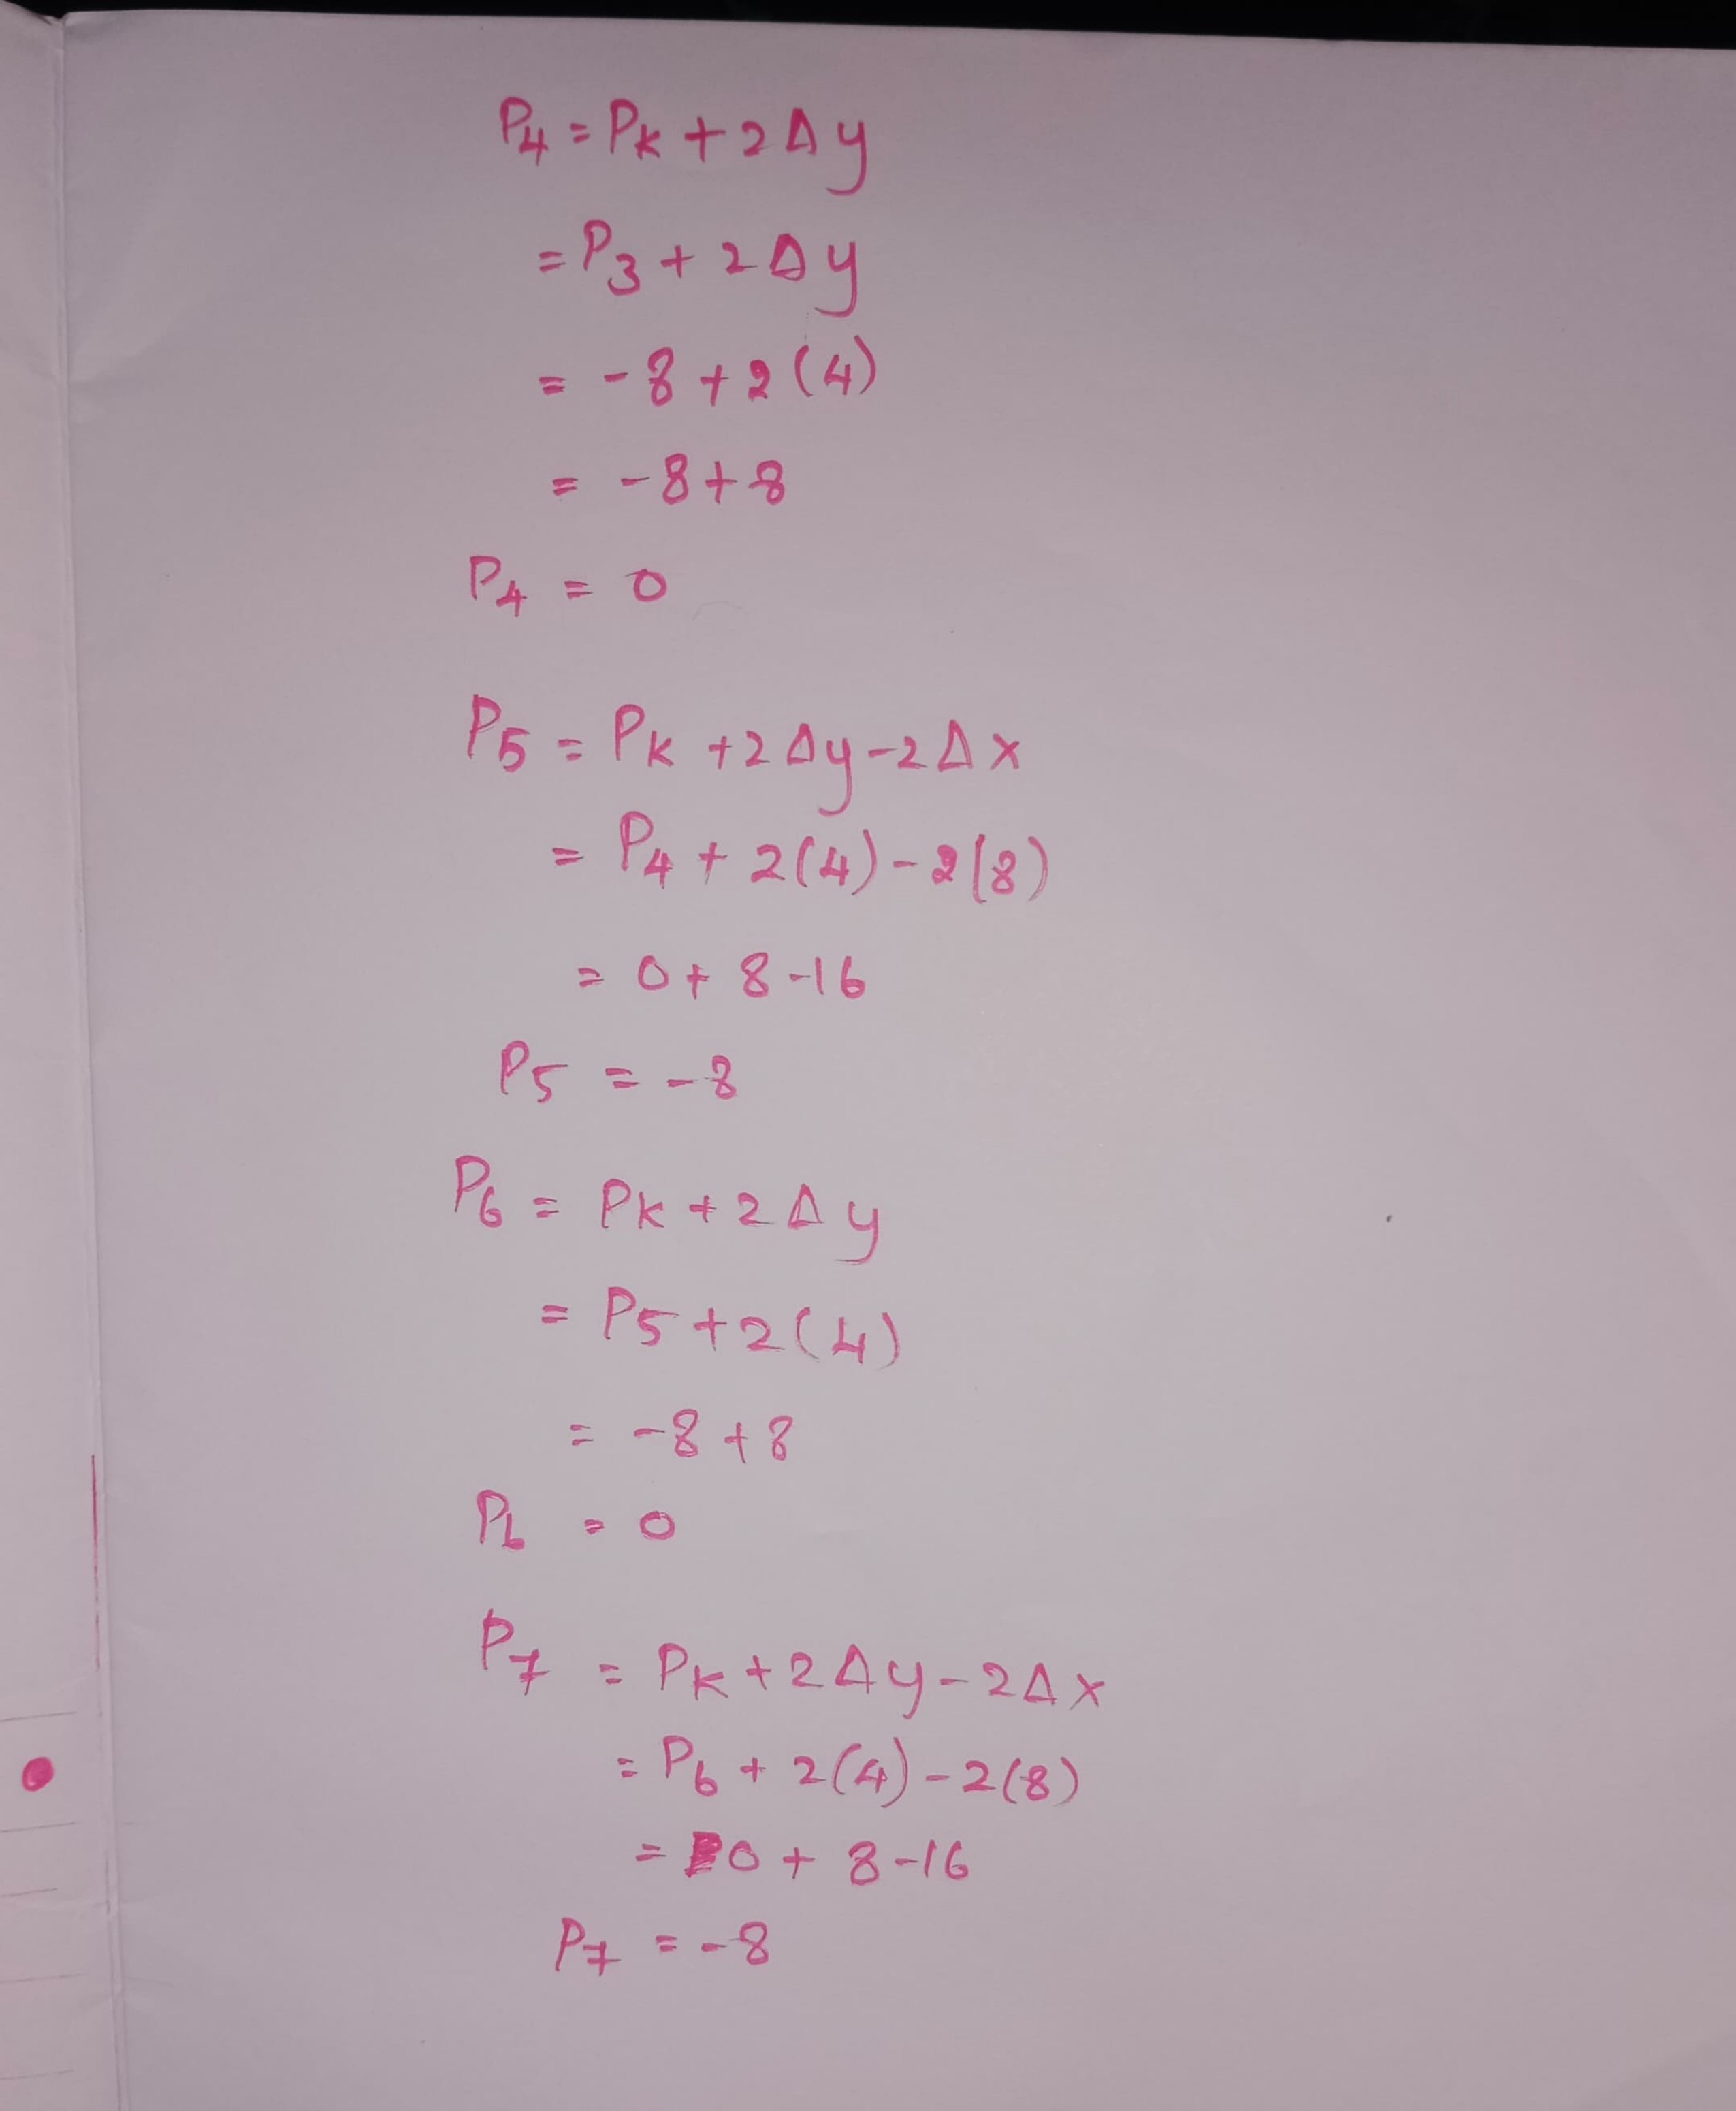 P4 = Pk + 2Δy
= P3 + 2Δy
= -8 + 2(4)
= -8+8
P4 = 0
P5 = Pk +2Δy-2Δx
= P4 + 2(4) - 2(8)
= 0 + 8-16
P5 = -8
P6 = Pk +2Δy
= P5 +2(4)
= -8 +8
P6 = 0
P7 = Pk +2Δy-2Δx
= P6 + 2(4) - 2(8)
= 0 + 8-16
P7 = -8